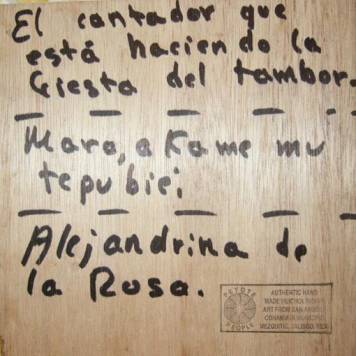 El cantador que
está haciendo la
Fiesta del tambor.
Mara,a Kame mu
tepubiei
Alejandrina de
la Rosa.
PEYOTE
PEOPLE
AUTHENTIC HAND
MADE HUICHOL INDIAN
ART FROM SAN ANDRES
COHAMIATA MUNICIPIO
MEZQUITIC, JALISCO, MEX